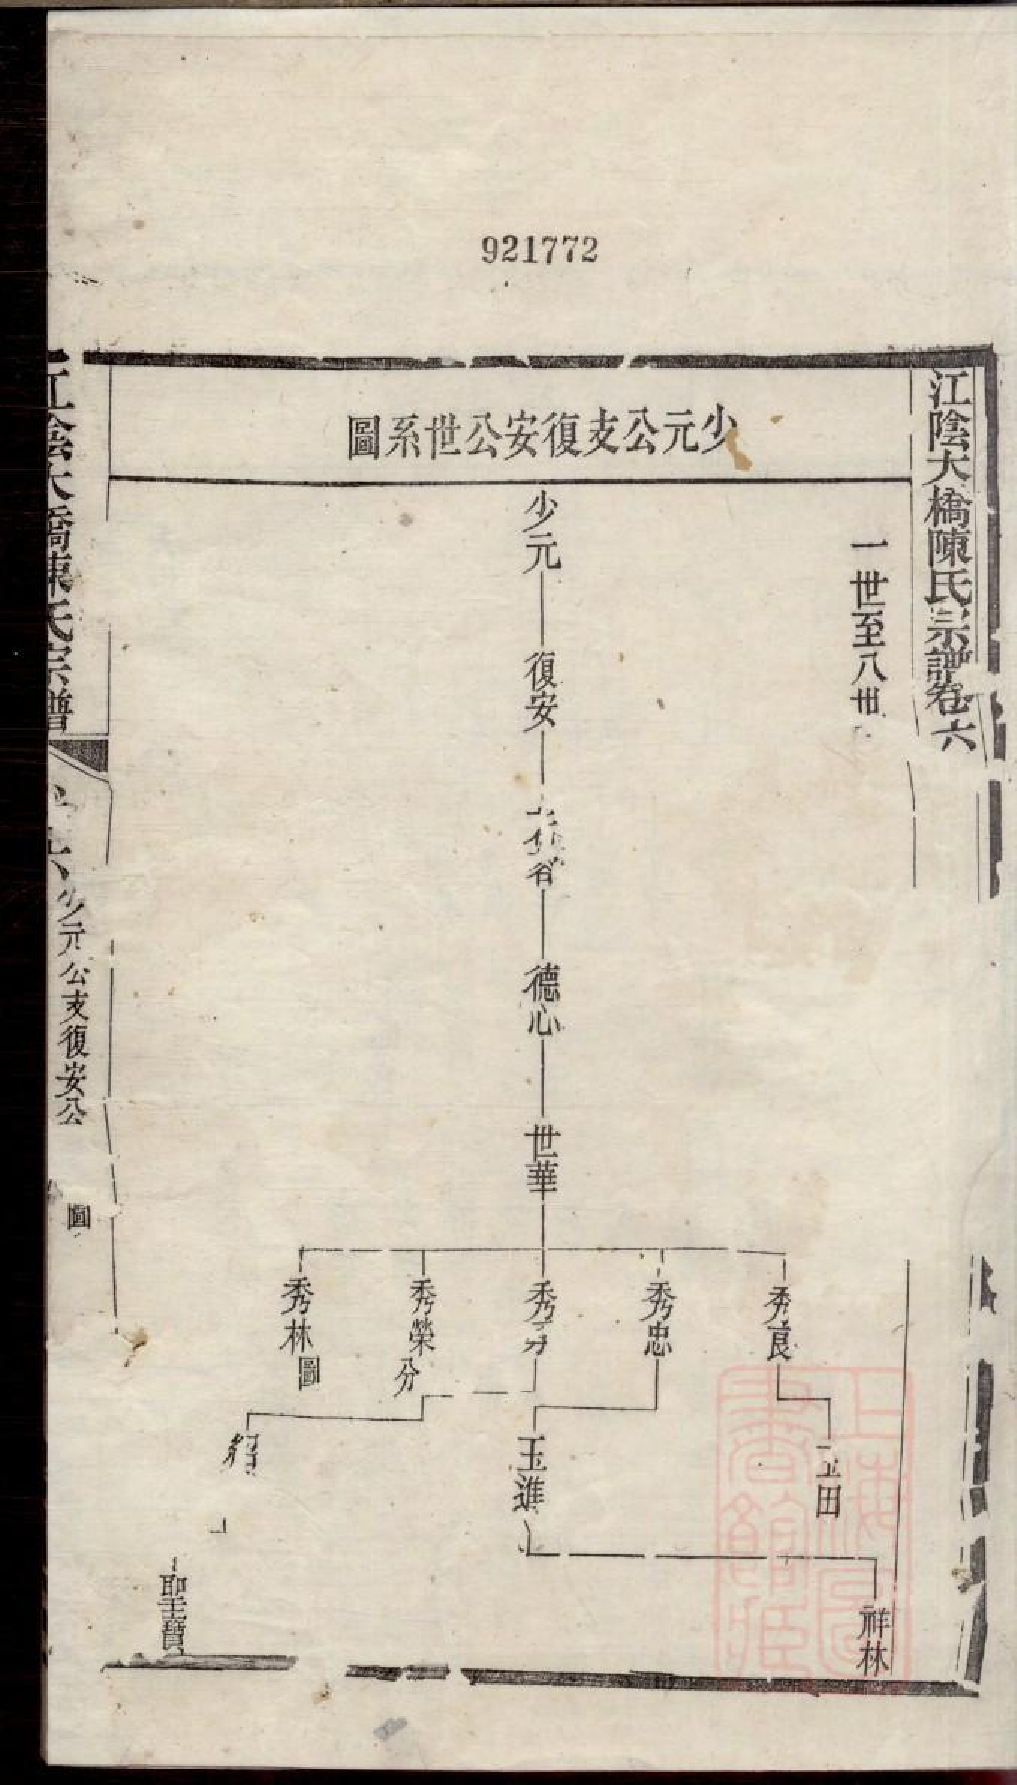 921772
江陰大橋陳氏宗譜卷六
少元公支復安公世系圖
一世至八世
少元
復安
德心
世華
秀良
秀忠
秀
秀榮分
秀林圖
玉田
玉進
祥林
聖寶
江陰大橋陳氏宗譜
六
少元公支復安公
圖